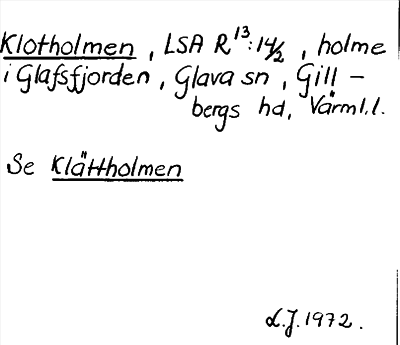 Klotholmen, LSA R13:14/2, holme
i Glafsfjorden, Glava sn, Gill-
bergs hd, Värml.l.
Se Klättholmen
L.J. 1972.